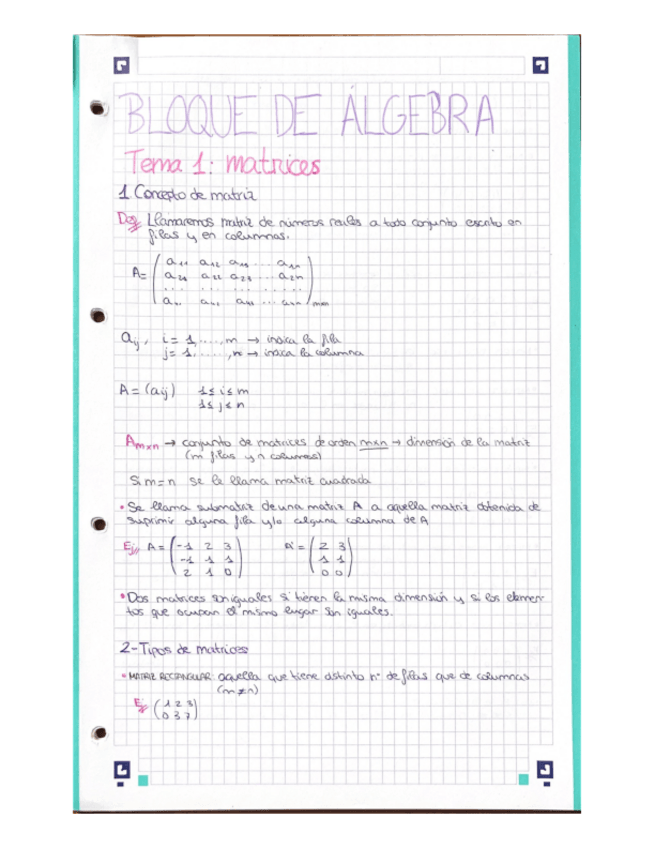 BLOQUE DE ÁLGEBRA
Tema 1: matrices
1 Concepto de matriz
Def Llamaremos matriz de números reales a todo conjunto escrito en
filas y en columnas.
A= ( a₁₁ a₁₂ a₁₃ ... a₁n
a₂₁ a₂₂ a₂₃ ... a₂n
. . . . . . . . . . .
) mxn
aij, i= 1,....,m → indica la fila
j= 1......,n → indica la columna
A= (aij) 1≤ i ≤ m
1≤ j ≤ n
Amxn → conjunto de matrices de orden mxn → dimensión de la matriz
(m filas y n columnas)
Si m=n se le llama matriz cuadrada
• Se llama submatriz de una matriz A a aquella matriz obtenida de
suprimir alguna fila y/o alguna columna de A
Ej A= (-1 2 3 A'= (2 3
-1 1 1 1 1
2 1 0) 0 0)
• Dos matrices son iguales si tienen la misma dimensión y si los elemen-
tos que ocupan el mismo lugar son iguales.
2-Tipos de matrices
• MATRIZ RECTANGULAR: aquella que tiene distinto nº de filas que de columnas
(m≠n)
Ej (1 2 3
0 3 7)